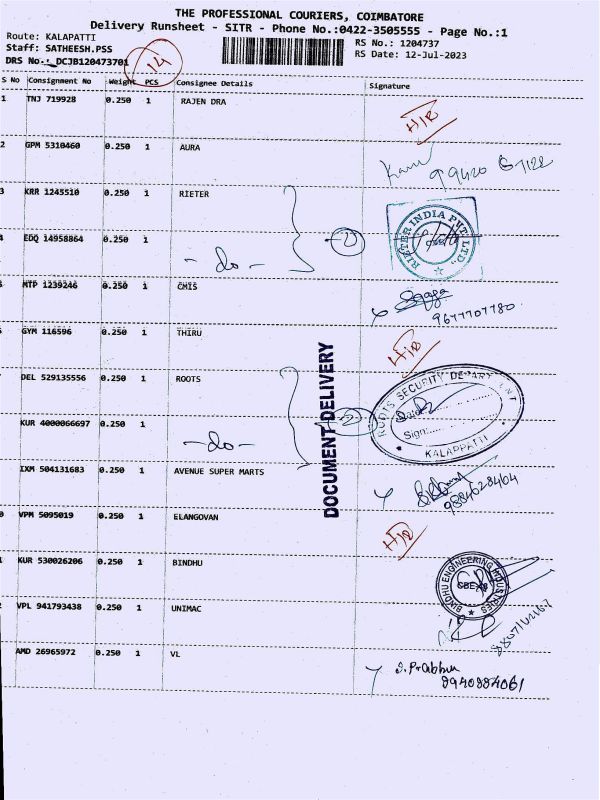 THE PROFESSIONAL COURIERS, COIMBATORE
Delivery Runsheet - SITR - Phone No.:0422-3505555 - Page No.:1
Route: KALAPATTI
RS No.: 1204737
Staff: SATHEESH.PSS
RS Date: 12-Jul-2023
DRS No.:_DCJB120473701
14
S No Consignment No Weight PCS Consignee Details Signature
1 TNJ 719928 0.250 1 RAJEN DRA
2 GPM 5310460 0.250 1 AURA
3 KRR 1245510 0.250 1 RIETER
RIETER INDIA PVT. LTD.,
4 EDQ 14958864 0.250 1 - do - 2
MTP 1239246 0.250 1 CMIS
9677707780
GYM 116596 0.250 1 THIRU
DEL 529135556 0.250 1 ROOTS
ROOTS SECURITY DEPARTMENT
KUR 4000066697 0.250 1 - do - 2
Sign:
KALAPPATTI
DOCUMENT DELIVERY
IXM 504131683 0.250 1 AVENUE SUPER MARTS
9884628464
0 VPM 5095019 0.250 1 ELANGOVAN
KUR 530026206 0.250 1 BINDHU
BINDHU ENGINEERING INDUSTRIES
VPL 941793438 0.250 1 UNIMAC
AMD 26965972 0.250 1 VL
S. Prabhu
8940884061